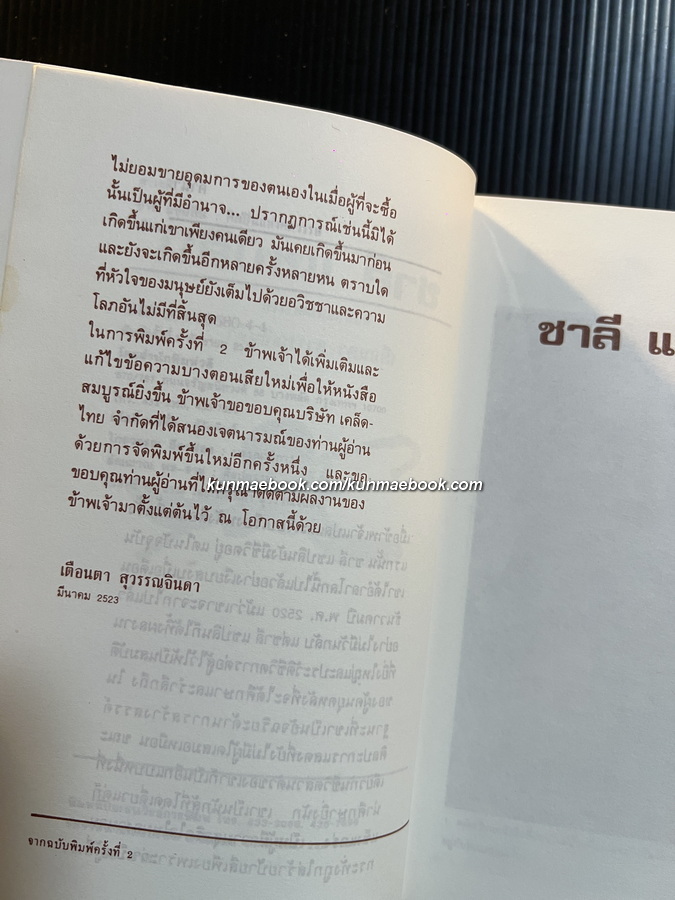 ไม่ยอมขายอุดมการของตนเองในเมื่อผู้ที่จะซื้อ
นั้นเป็นผู้ที่มีอำนาจ... ปรากฏการณ์เช่นนี้มิได้
เกิดขึ้นแก่เขาเพียงคนเดียว มันเคยเกิดขึ้นมาก่อน
และยังจะเกิดขึ้นอีกหลายครั้งหลายหน ตราบใด
ที่หัวใจของมนุษย์ยังเต็มไปด้วยอวิชชาและความ
โลภอันไม่มีที่สิ้นสุด
ในการพิมพ์ครั้งที่ 2 ข้าพเจ้าได้เพิ่มเติมและ
แก้ไขข้อความบางตอนเสียใหม่เพื่อให้หนังสือ
สมบูรณ์ยิ่งขึ้น ข้าพเจ้าขอขอบคุณบริษัท เคล็ด-
ไทย จำกัดที่ได้สนองเจตนารมณ์ของท่านผู้อ่าน
ด้วยการจัดพิมพ์ขึ้นใหม่อีกครั้งหนึ่ง และขอ
ขอบคุณท่านผู้อ่านที่ได้กรุณาติดตามผลงานของ
kunmaebook.com/kunmaebook.com
ข้าพเจ้ามาตั้งแต่ต้นไว้ ณ โอกาสนี้ด้วย
เตือนตา สุวรรณจินดา
มีนาคม 2523
จากฉบับพิมพ์ครั้งที่ 2
ชาลี แ